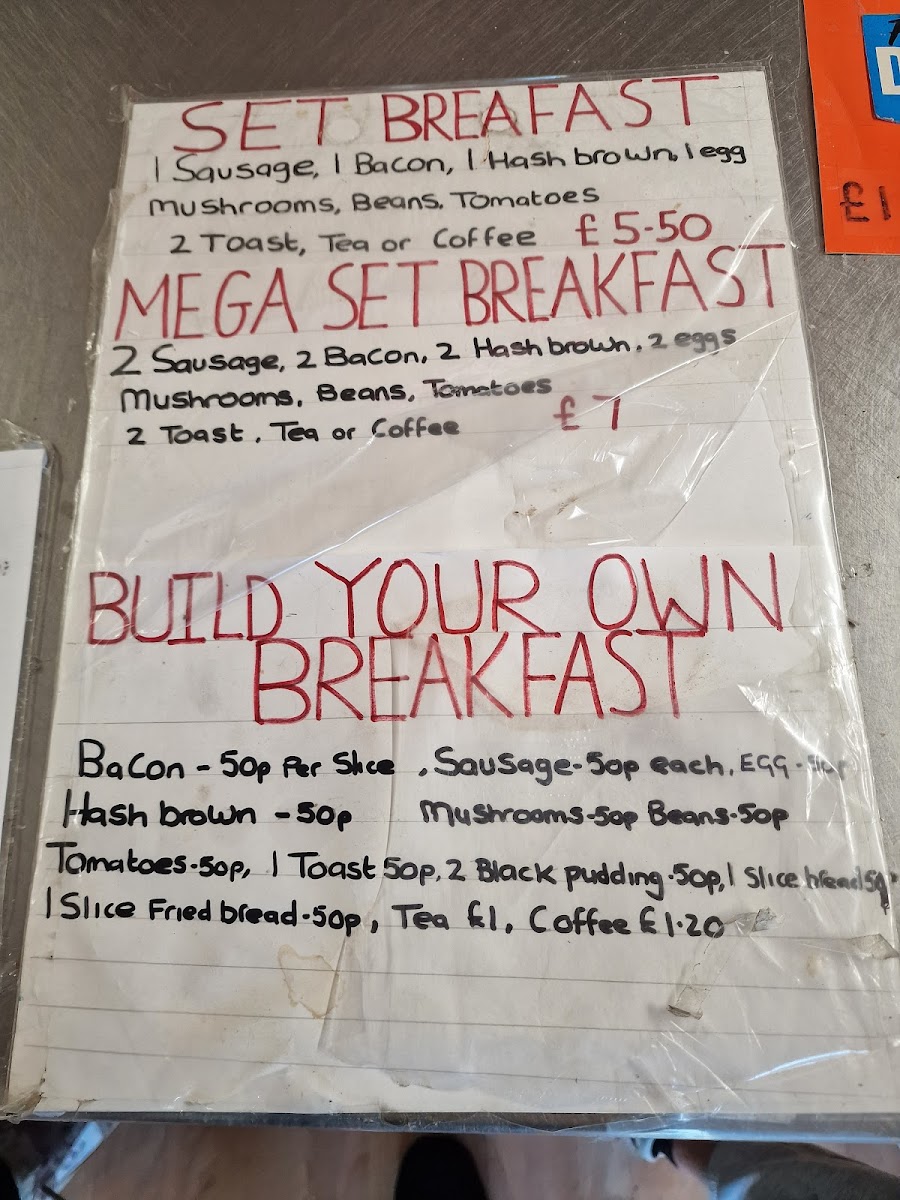 SET BREAFAST
1 Sausage, 1 Bacon, 1 Hash brown, 1 egg
Mushrooms, Beans, Tomatoes
2 Toast, Tea or Coffee £5-50
MEGA SET BREAKFAST
2 Sausage, 2 Bacon, 2 Hash brown, 2 eggs
Mushrooms, Beans, Tomatoes
2 Toast, Tea or Coffee £7
BUILD YOUR OWN
BREAKFAST
Bacon - 50p Per Slice , Sausage-50p each, EGG -
Hash brown - 50p Mushrooms-50p Beans-50p
Tomatoes-50p, 1 Toast 50p, 2 Black pudding-50p, 1 Slice bread
1 Slice Fried bread-50p, Tea £1, Coffee £1-20
£1